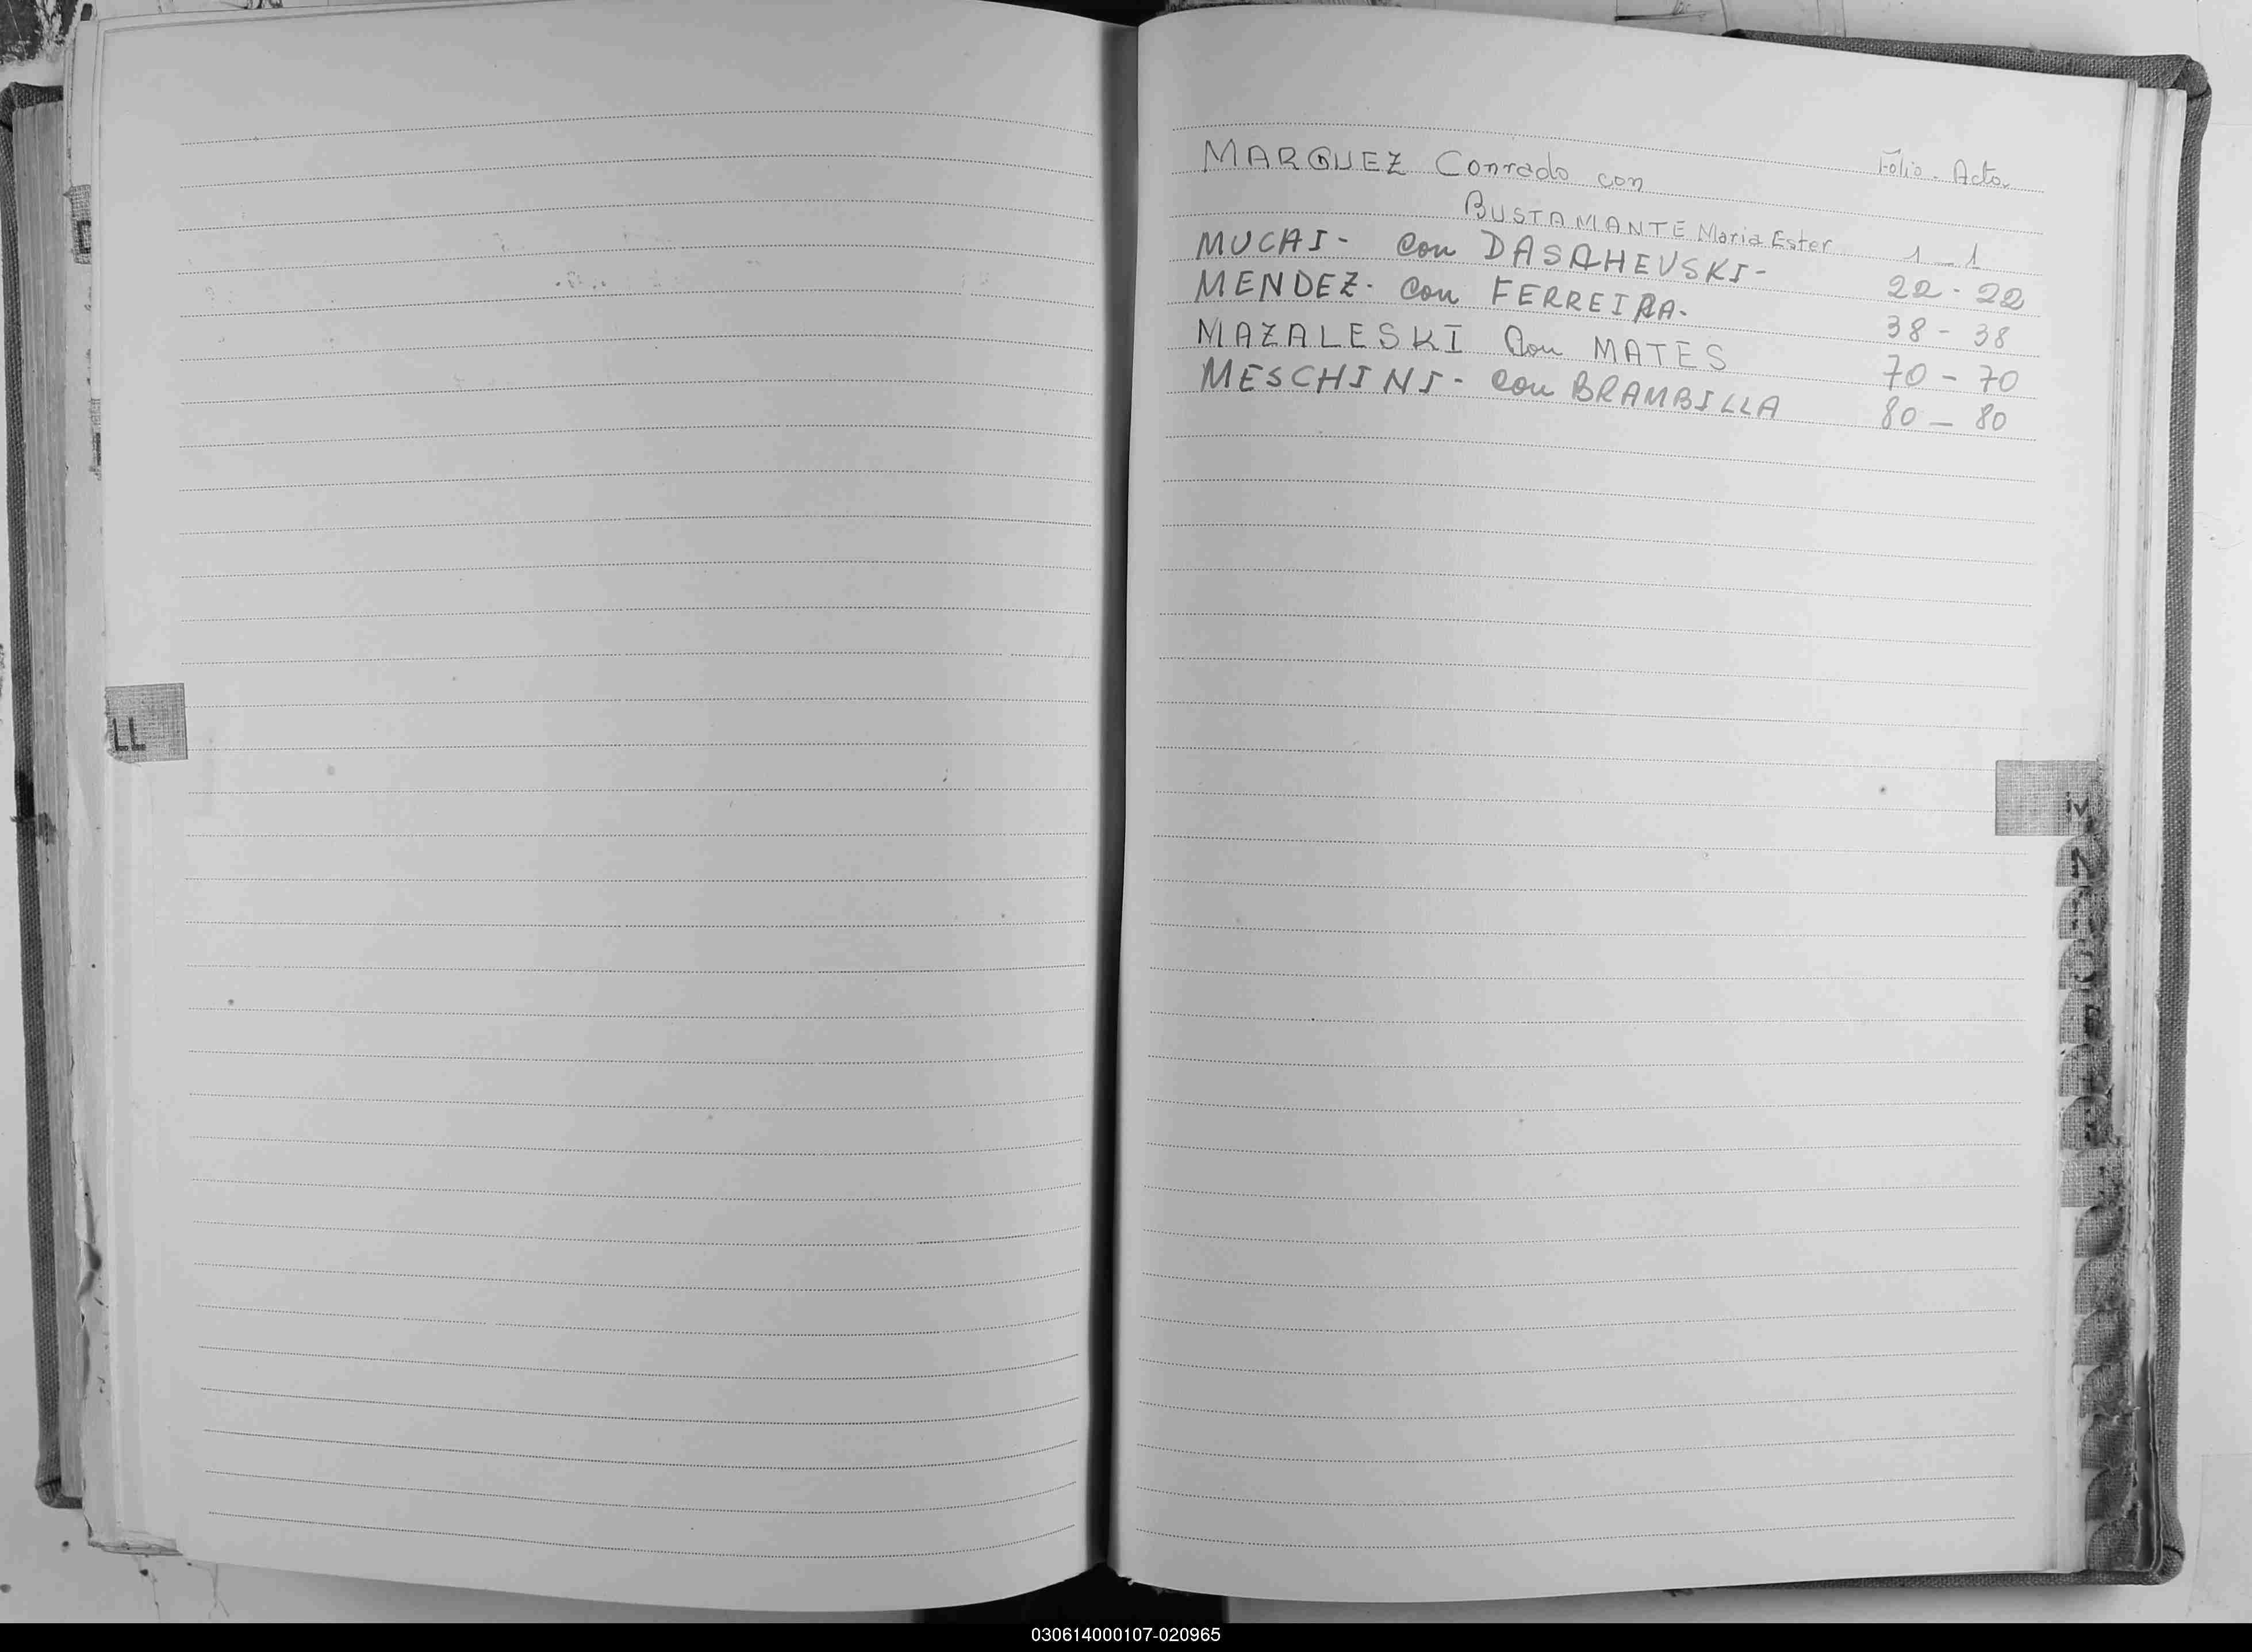 LL
MARQUEZ Conrado con Folio - Acta
BUSTAMANTE Maria Ester 1 - 1
MUCAI - con 22 - 22
MENDEZ - con FERREIRA - 38 - 38
MAZALESKI con MATES 70 - 70
MESCHINI - con BRAMBILLA 80 - 80
030614000107-020965